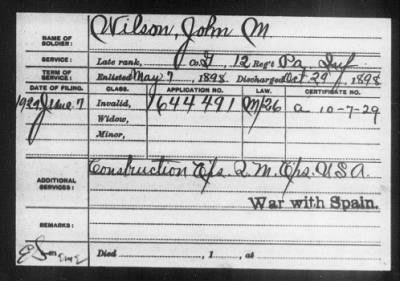 NAME OF SOLDIER: Wilson, John M.
SERVICE: Late rank, Co. G, 12 Reg't Pa. Inf.
TERM OF SERVICE: Enlisted May 7, 1898 Discharged Oct 29, 1898
DATE OF FILING. CLASS. APPLICATION NO. LAW. CERTIFICATE NO.
1929 June 7 Invalid, 1644491 a 10-7-29
Widow,
Minor,
ADDITIONAL SERVICES: Construction Q. M. U.S.A.
War with Spain.
REMARKS:
Died , 1 , at